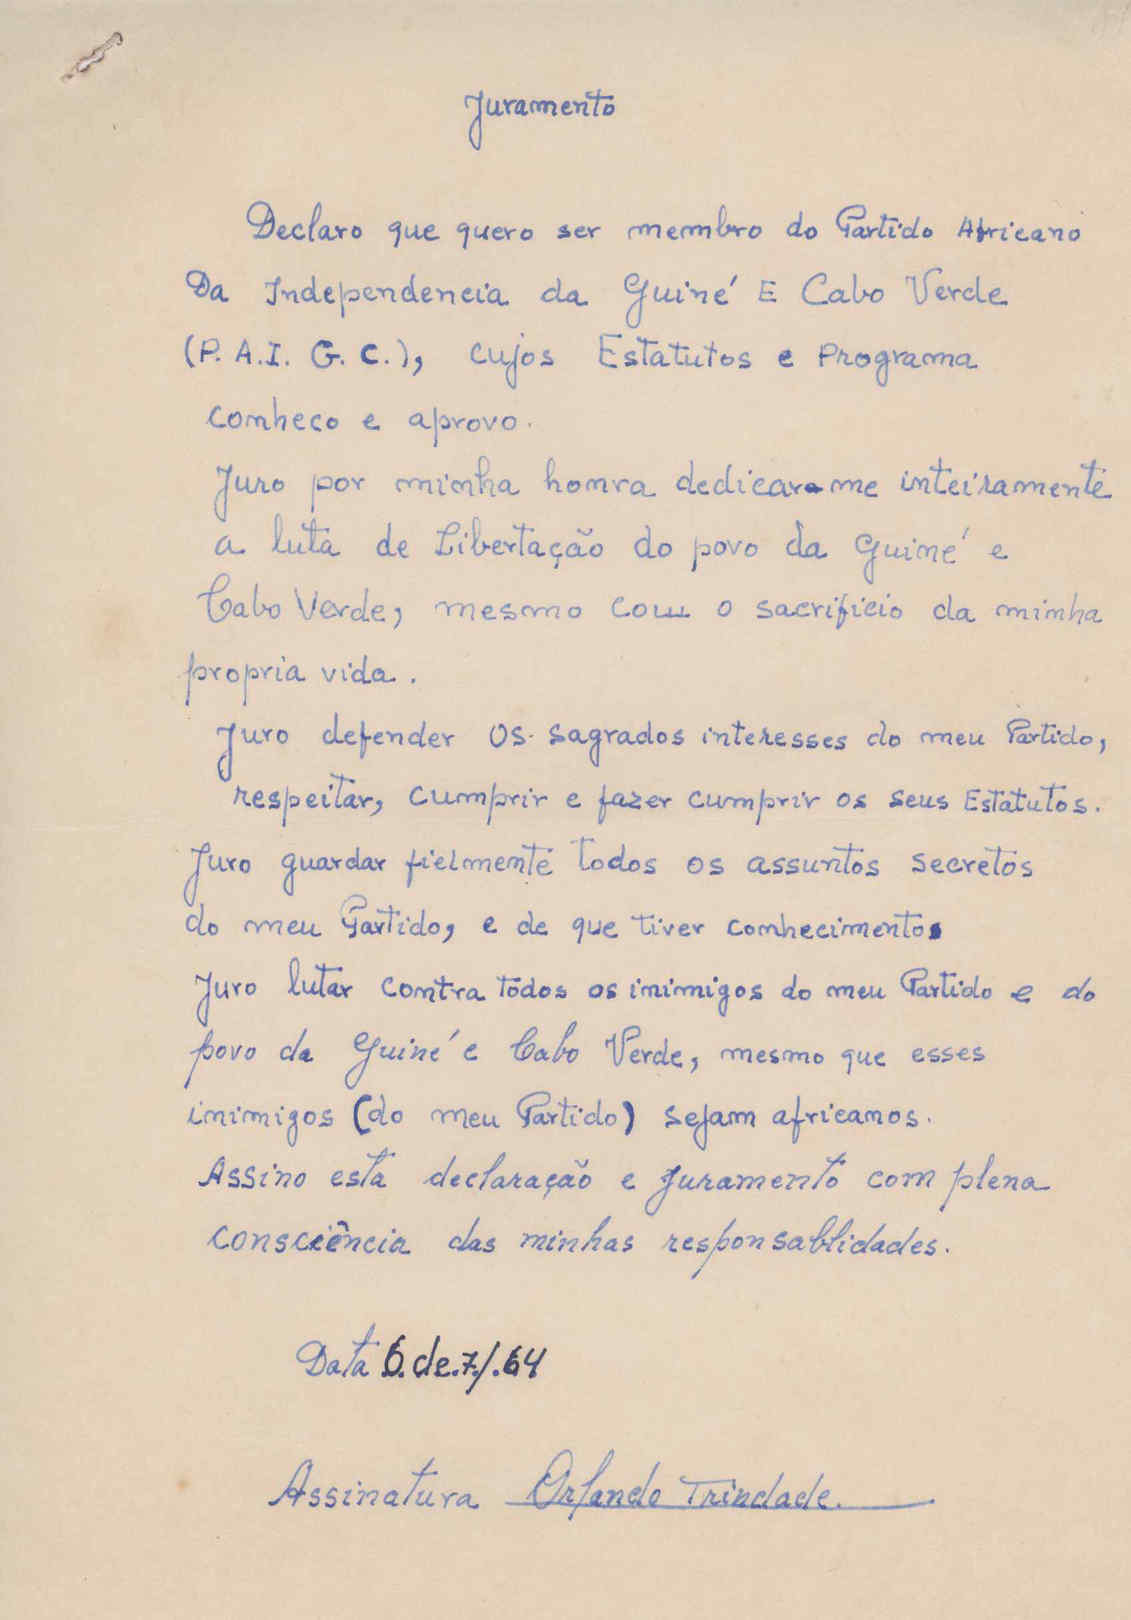 Juramento
Declaro que quero ser membro do Partido Africano
Da Independencia da Guiné E Cabo Verde
(P.A.I.G.C.), cujos Estatutos e Programa
conheco e aprovo.
Juro por minha honra dedicar-me inteiramente
a luta de Libertação do povo da Guiné e
Cabo Verde, mesmo com o sacrificio da minha
propria vida.
Juro defender os sagrados interesses do meu Partido,
respeitar, cumprir e fazer cumprir os seus Estatutos.
Juro guardar fielmente todos os assuntos secretos
do meu Partido, e de que tiver conhecimento.
Juro lutar contra todos os inimigos do meu Partido e do
povo da Guiné e Cabo Verde, mesmo que esses
inimigos (do meu Partido) sejam africanos.
Assino esta declaração e juramento com plena
consciência das minhas responsablidades.
Data 6.de.7./.64
Assinatura Orlando Trindade.